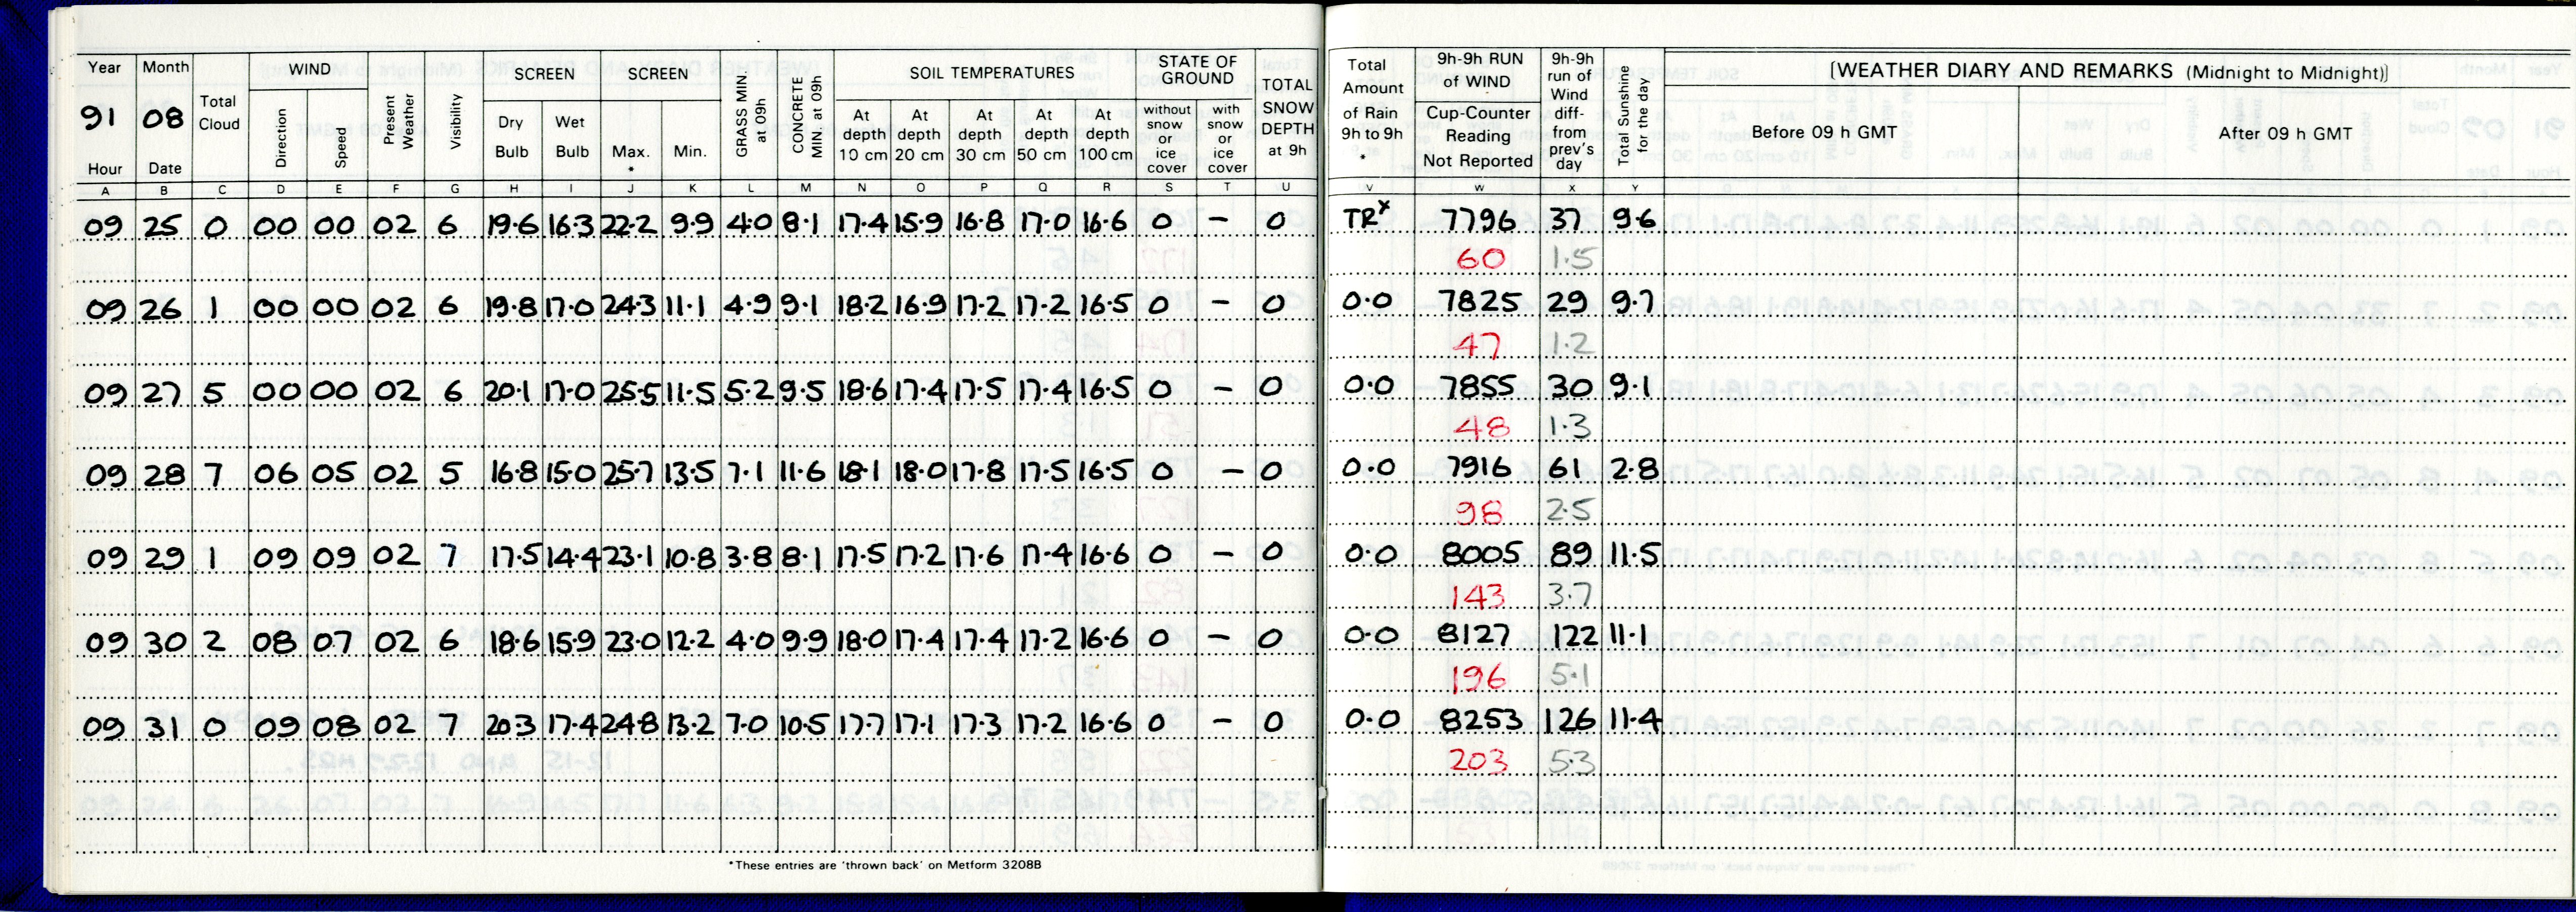 Year Month Total Cloud WIND Present Weather Visibility SCREEN SCREEN GRASS MIN. at 09h CONCRETE MIN at 09h SOIL TEMPERATURES STATE OF GROUND TOTAL SNOW DEPTH at 9h Total Amount of Rain 9h to 9h * 9h-9h RUN of WIND 9h-9h run of Wind diff- from prev's day Total Sunshine for the day [WEATHER DIARY AND REMARKS (Midnight to Midnight)]
91 08 Direction Speed Dry Bulb Wet Bulb Max. * Min. At depth 10 cm At depth 20 cm At depth 30 cm At depth 50 cm At depth 100 cm without snow or ice cover with snow or ice cover Cup-Counter Reading Not Reported Before 09 h GMT After 09 h GMT
Hour Date
A B C D E F G H I J K L M N O P Q R S T U V W X Y
09 25 0 00 00 02 6 19.6 16.3 22.2 9.9 4.0 8.1 17.4 15.9 16.8 17.0 16.6 0 – 0 TRx 7796 37 9.6
60 1.5
09 26 1 00 00 02 6 19.8 17.0 24.3 11.1 4.9 9.1 18.2 16.9 17.2 17.2 16.5 0 – 0 0.0 7825 29 9.7
47 1.2
09 27 5 00 00 02 6 20.1 17.0 25.5 11.5 5.2 9.5 18.6 17.4 17.5 17.4 16.5 0 – 0 0.0 7855 30 9.1
48 1.3
09 28 7 06 05 02 5 16.8 15.0 25.7 13.5 7.1 11.6 18.1 18.0 17.8 17.5 16.5 0 – 0 0.0 7916 61 2.8
98 2.5
09 29 1 09 09 02 7 17.5 14.4 23.1 10.8 3.8 8.1 17.5 17.2 17.6 17.4 16.6 0 – 0 0.0 8005 89 11.5
143 3.7
09 30 2 08 07 02 6 18.6 15.9 23.0 12.2 4.0 9.9 18.0 17.4 17.4 17.2 16.6 0 – 0 0.0 8127 122 11.1
196 5.1
09 31 0 09 08 02 7 20.3 17.4 24.8 13.2 7.0 10.5 17.7 17.1 17.3 17.2 16.6 0 – 0 0.0 8253 126 11.4
203 5.3
*These entries are 'thrown back' on Metform 3208B